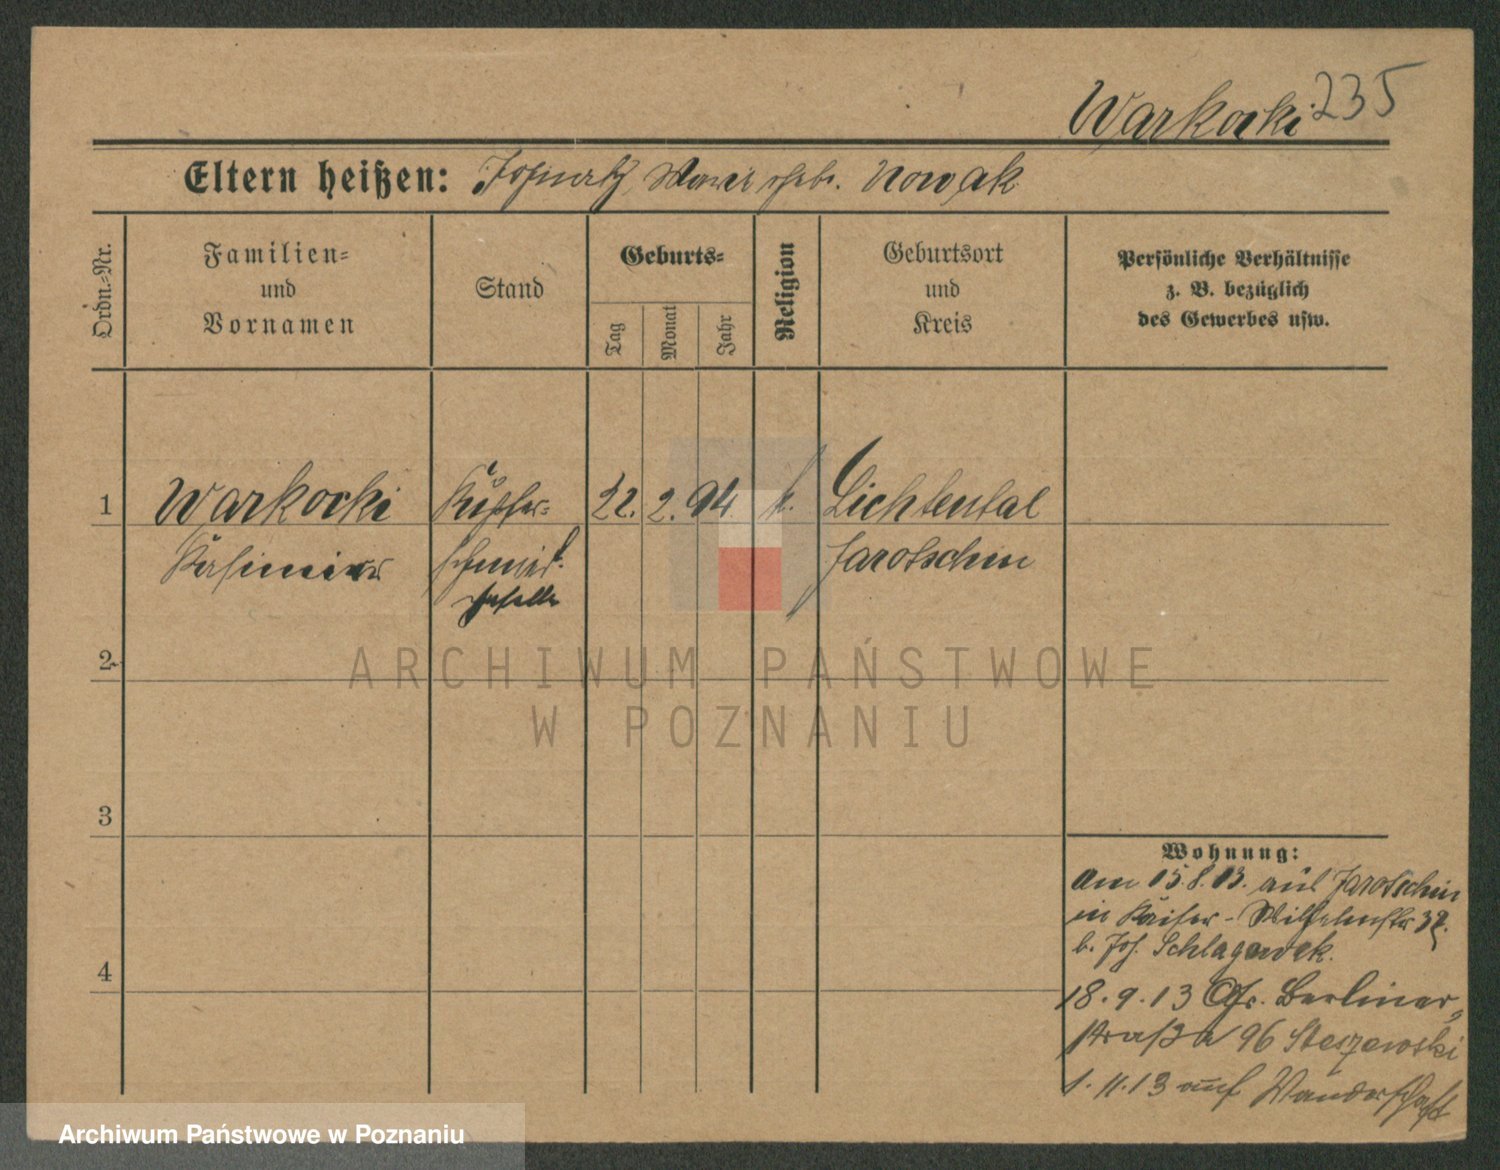 Warkocki 235
Eltern heißen: Ignatz, Maria geb. Nowak
Ordn.=Nr.
Familien=
und
Vornamen
Stand
Geburts=
Tag
Monat
Jahr
Religion
Geburtsort
und
Kreis
Persönliche Verhältnisse
z. B. bezüglich
des Gewerbes usw.
1 Warkocki Kupfer= 22. 2. 94. k. Lichtental
Kasimir schmied= Jarotschin
geselle
2
ARCHIWUM PAŃSTWOWE
W POZNANIU
3
Wohnung:
Am 15.8.13. aus Jarotschin
in Kaiser-Wilhelmstr
b. Jos. Schlagowek.
4
18.9.13 Berliner
straße 96 Steszewski
1.11.13 auf Wanderschaft
Archiwum Państwowe w Poznaniu